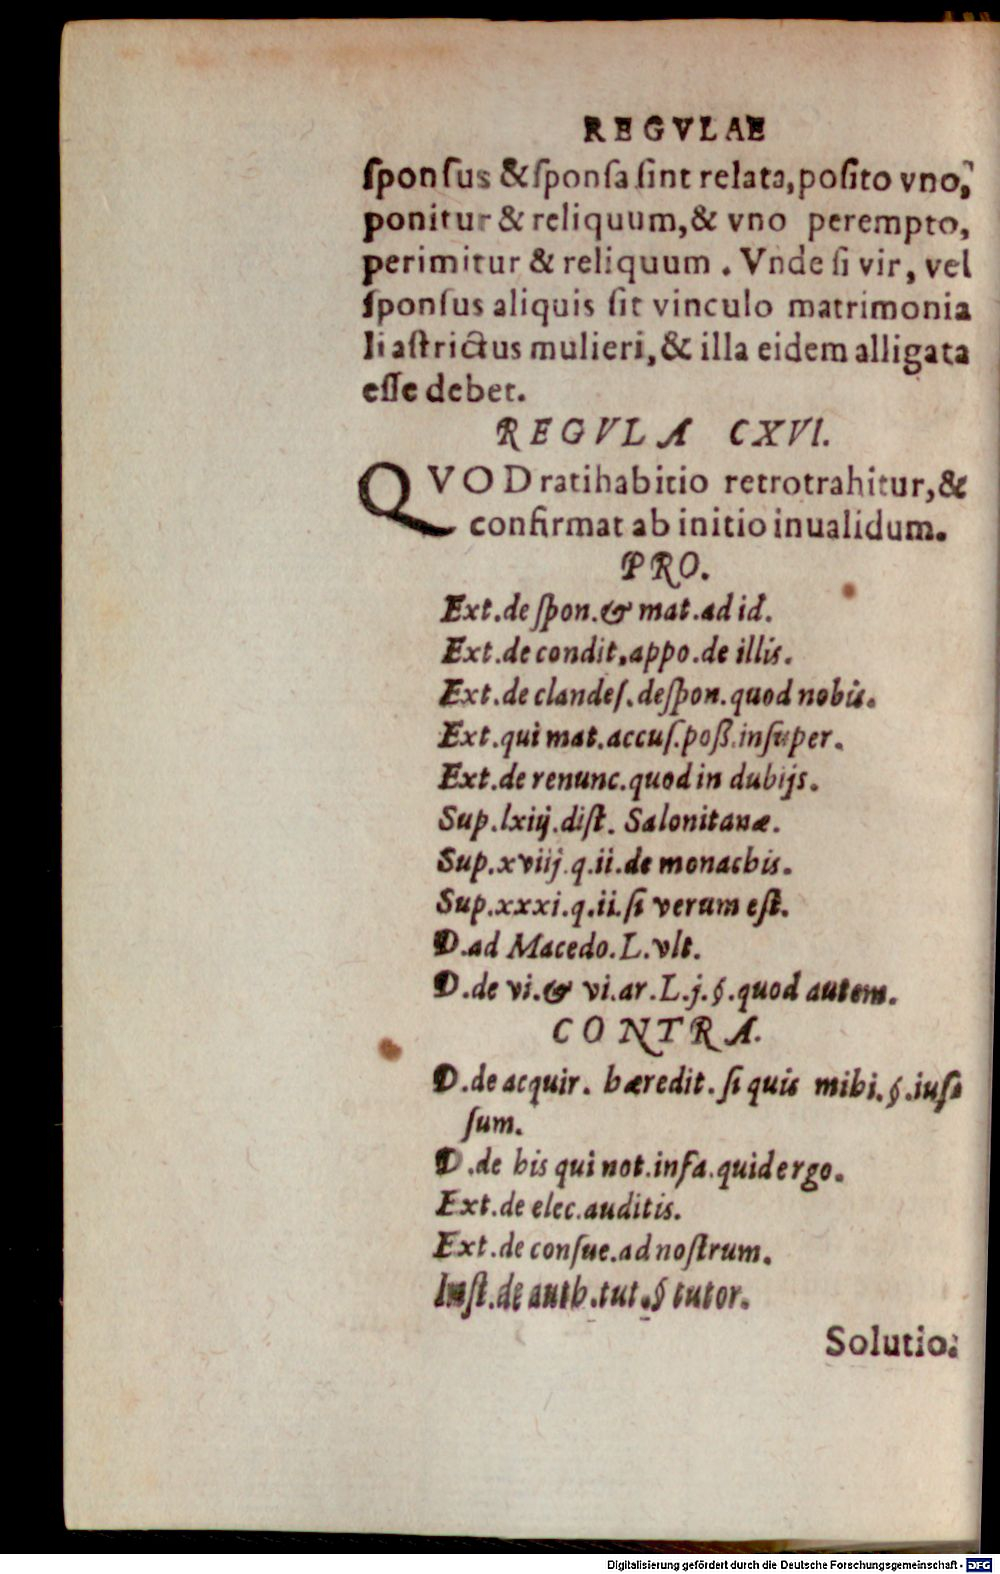 REGVLAE
ſponſus & ſponſa ſint relata, poſito vno,
ponitur & reliquum, & vno perempto,
perimitur & reliquum. Vnde ſi vir, vel
ſponſus aliquis ſit vinculo matrimonia
li aſtrictus mulieri, & illa eidem alligata
eſſe debet.
REGVLA CXVI.
QVOD ratihabitio retrotrahitur, &
confirmat ab initio inualidum.
PRO.
Ext. de ſpon. & mat. ad id.
Ext. de condit. appo. de illis.
Ext. de clandeſ. deſpon. quod nobis.
Ext. qui mat. accuſ. poß. inſuper.
Ext. de renunc. quod in dubijs.
Sup. lxiij. diſt. Salonitanæ.
Sup. xviij. q. ii. de monachis.
Sup. xxxi. q. ii. ſi verum eſt.
D. ad Macedo. L. vlt.
D. de vi. & vi. ar. L. j. §. quod autem.
CONTRA.
D. de acquir. hæredit. ſi quis mihi. §. iuſ-
ſum.
D. de his qui not. infa. quid ergo.
Ext. de elec. auditis.
Ext. de conſue. ad noſtrum.
Inſt. de auth. tut. § tutor.
Solutio.
Digitalisierung gefördert durch die Deutsche Forschungsgemeinschaft - DFG